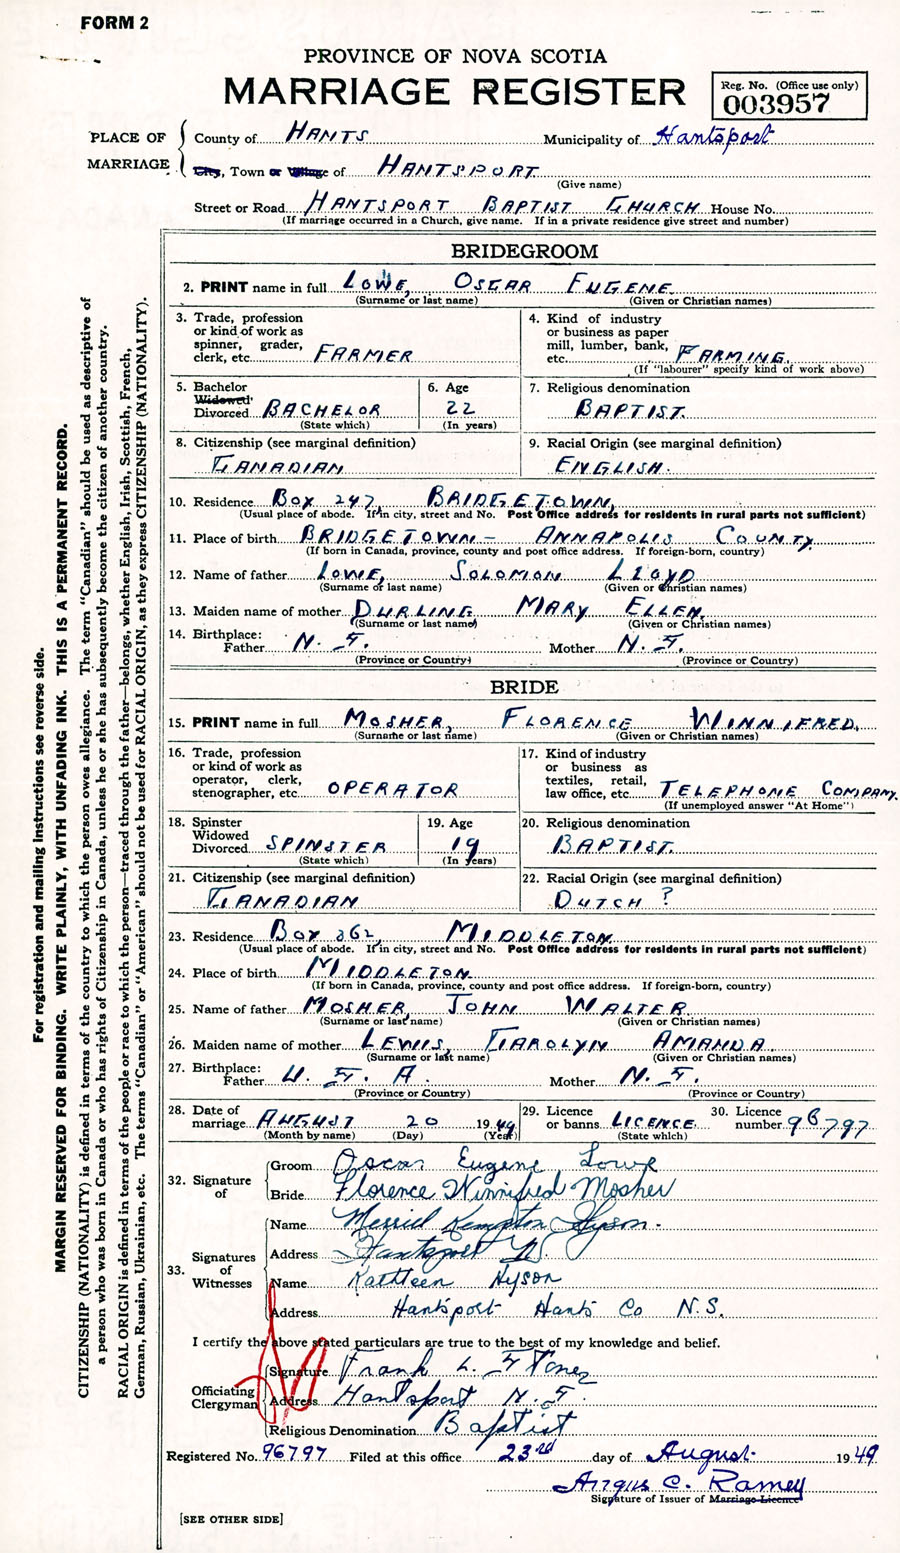 FORM 2
PROVINCE OF NOVA SCOTIA
MARRIAGE REGISTER
Reg. No. (Office use only)
003957
PLACE OF MARRIAGE
County of HANTS Municipality of Hantsport
City, Town or Village of HANTSPORT
(Give name)
Street or Road HANTSPORT BAPTIST CHURCH House No.
(If marriage occurred in a Church, give name. If in a private residence give street and number)
BRIDEGROOM
2. PRINT name in full LOWE, OSCAR EUGENE
(Surname or last name) (Given or Christian names)
3. Trade, profession
or kind of work as
spinner, grader,
clerk, etc. FARMER
4. Kind of industry
or business as paper
mill, lumber, bank,
etc. FARMING
(If "labourer" specify kind of work above)
5. Bachelor
Widowed
Divorced BACHELOR
(State which)
6. Age
22
(In years)
7. Religious denomination
BAPTIST.
8. Citizenship (see marginal definition)
CANADIAN
9. Racial Origin (see marginal definition)
ENGLISH.
10. Residence BOX 247, BRIDGETOWN,
(Usual place of abode. If in city, street and No. Post Office address for residents in rural parts not sufficient)
11. Place of birth BRIDGETOWN - ANNAPOLIS COUNTY
(If born in Canada, province, county and post office address. If foreign-born, country)
12. Name of father LOWE, SOLOMON LLOYD
(Surname or last name) (Given or Christian names)
13. Maiden name of mother DURLING MARY ELLEN
(Surname or last name) (Given or Christian names)
14. Birthplace:
Father N. S. Mother N. S.
(Province or Country) (Province or Country)
BRIDE
15. PRINT name in full MOSHER, FLORENCE WINNIFRED
(Surname or last name) (Given or Christian names)
16. Trade, profession
or kind of work as
operator, clerk,
stenographer, etc. OPERATOR
17. Kind of industry
or business as
textiles, retail,
law office, etc. TELEPHONE COMPANY.
(If unemployed answer "At Home")
18. Spinster
Widowed
Divorced SPINSTER
(State which)
19. Age
19
(In years)
20. Religious denomination
BAPTIST.
21. Citizenship (see marginal definition)
CANADIAN
22. Racial Origin (see marginal definition)
DUTCH ?
23. Residence BOX 262, MIDDLETON
(Usual place of abode. If in city, street and No. Post Office address for residents in rural parts not sufficient)
24. Place of birth MIDDLETON
(If born in Canada, province, county and post office address. If foreign-born, country)
25. Name of father MOSHER, JOHN WALTER
(Surname or last name) (Given or Christian names)
26. Maiden name of mother LEWIS, CAROLYN AMANDA
(Surname or last name) (Given or Christian names)
27. Birthplace:
Father U. S. A. Mother N. S.
(Province or Country) (Province or Country)
28. Date of
marriage AUGUST 20 1949
(Month by name) (Day) (Year)
29. Licence
or banns LICENCE
(State which)
30. Licence
number 96797
32. Signature of
Groom Oscar Eugene Lowe
Bride Florence Winnifred Mosher
33. Signatures of Witnesses
Name Merril Kempton Hyson
Address Hantsport NS.
Name Kathleen Hyson
Address Hantsport Hants Co N.S.
I certify the above stated particulars are true to the best of my knowledge and belief.
Officiating Clergyman
Signature Frank L.
Address Hantsport N. S.
Religious Denomination Baptist
Registered No. 96797 Filed at this office 23rd day of August 1949
Angus C. Ramey
Signature of Issuer of Marriage Licence
[SEE OTHER SIDE]
For registration and mailing instructions see reverse side.
MARGIN RESERVED FOR BINDING. WRITE PLAINLY, WITH UNFADING INK. THIS IS A PERMANENT RECORD.
CITIZENSHIP (NATIONALITY) is defined in terms of the country to which the person owes allegiance. The term "Canadian" should be used as descriptive of
a person who was born in Canada or who has rights of Citizenship in Canada, unless he or she has subsequently become the citizen of another country.
RACIAL ORIGIN is defined in terms of the people or race to which the person—traced through the father—belongs, whether English, Irish, Scottish, French,
German, Russian, Ukrainian, etc. The terms "Canadian" or "American" should not be used for RACIAL ORIGIN, as they express CITIZENSHIP (NATIONALITY).